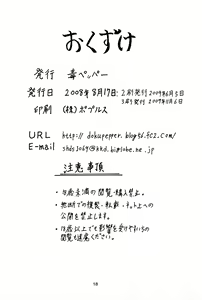 おくずけ
発行 毒ペッパー
発行日 2008年8月17日: 2刷発行2009年6月5日
3刷発行2009年11月6日
印刷 (株)ポプルス
URL http://dokupepper.blog51.fc2.com/
E-mail
注意事項
・18歳未満の閲覧・購入禁止。
・無断での複製・転載・ネット上への
公開を禁止します。
・18歳以上でも影響を受けやすい方の
閲覧も遠慮ください。
18